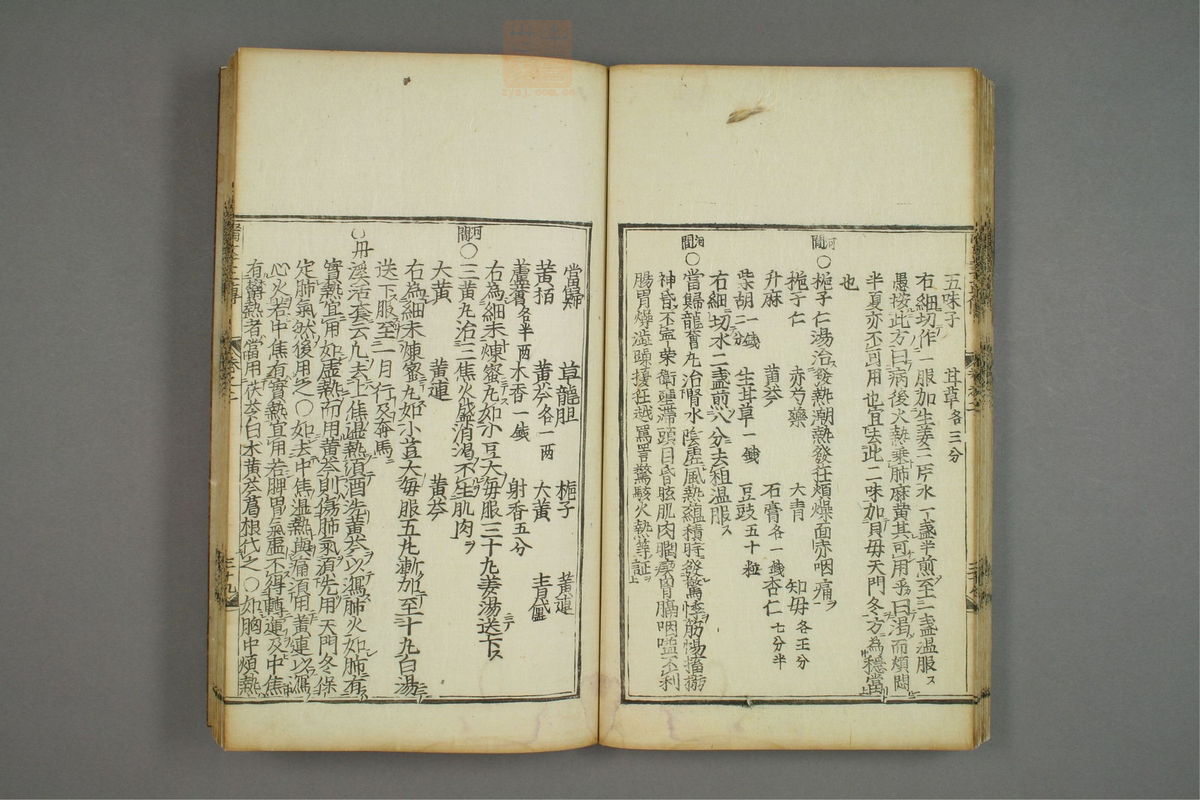 五味子 甘草各三分
右細切作一服加生姜三片水一盞半煎至一盞温服ス
愚按此方曰病後火熱乗肺麻黄其可用乎曰渇而煩悶
半夏亦不可用也宜去此二味加貝母天門冬方為穏當
也
河間
○梔子仁湯治發熱潮熱發狂煩燥面赤咽痛ヲ
梔子仁 赤芍藥 大青 知母各五分
升麻 黄芩 石膏各一錢 杏仁七分半
柴胡一錢 生甘草一錢 豆豉五十粒
右細切水二盞煎八分去粗温服ス
河間
○當歸龍薈丸治腎水陰虚風熱蘊積時發驚悸筋惕搐搦
神昏不寧榮衛壅滞頭目昏眩肌肉瞤瘈胸膈咽嗌不利
腸胃燥澁躁擾狂越罵詈驚駭火熱等証ヲ
當歸 草龍胆 梔子 黄連
黄栢 黄芩各一兩 大黄 青黛
蘆薈各半兩 木香一錢 射香五分
右為細末煉蜜丸如小豆大毎服三十九姜湯送下ス
河間
○三黄丸治三焦火盛消渇不生肌肉ヲ
大黄 黄連 黄芩
右為細末煉蜜丸如小豆大毎服五丸漸加至二十九白湯
送下服至一月行及奔馬ニ
○丹溪活套云凢去上焦虚熱須酒洗黄芩以瀉肺火如肺有
實熱宜用如虚熱而用黄芩則傷肺氣須先用天門冬保
定肺氣然後用之○如去中焦温熱與痛須用黄連以瀉
心火若中焦有實熱宜用若脾胃氣虚不得轉運及中焦
有欝熱者當用茯苓白朮黄芩葛根代之○如胸中煩熱